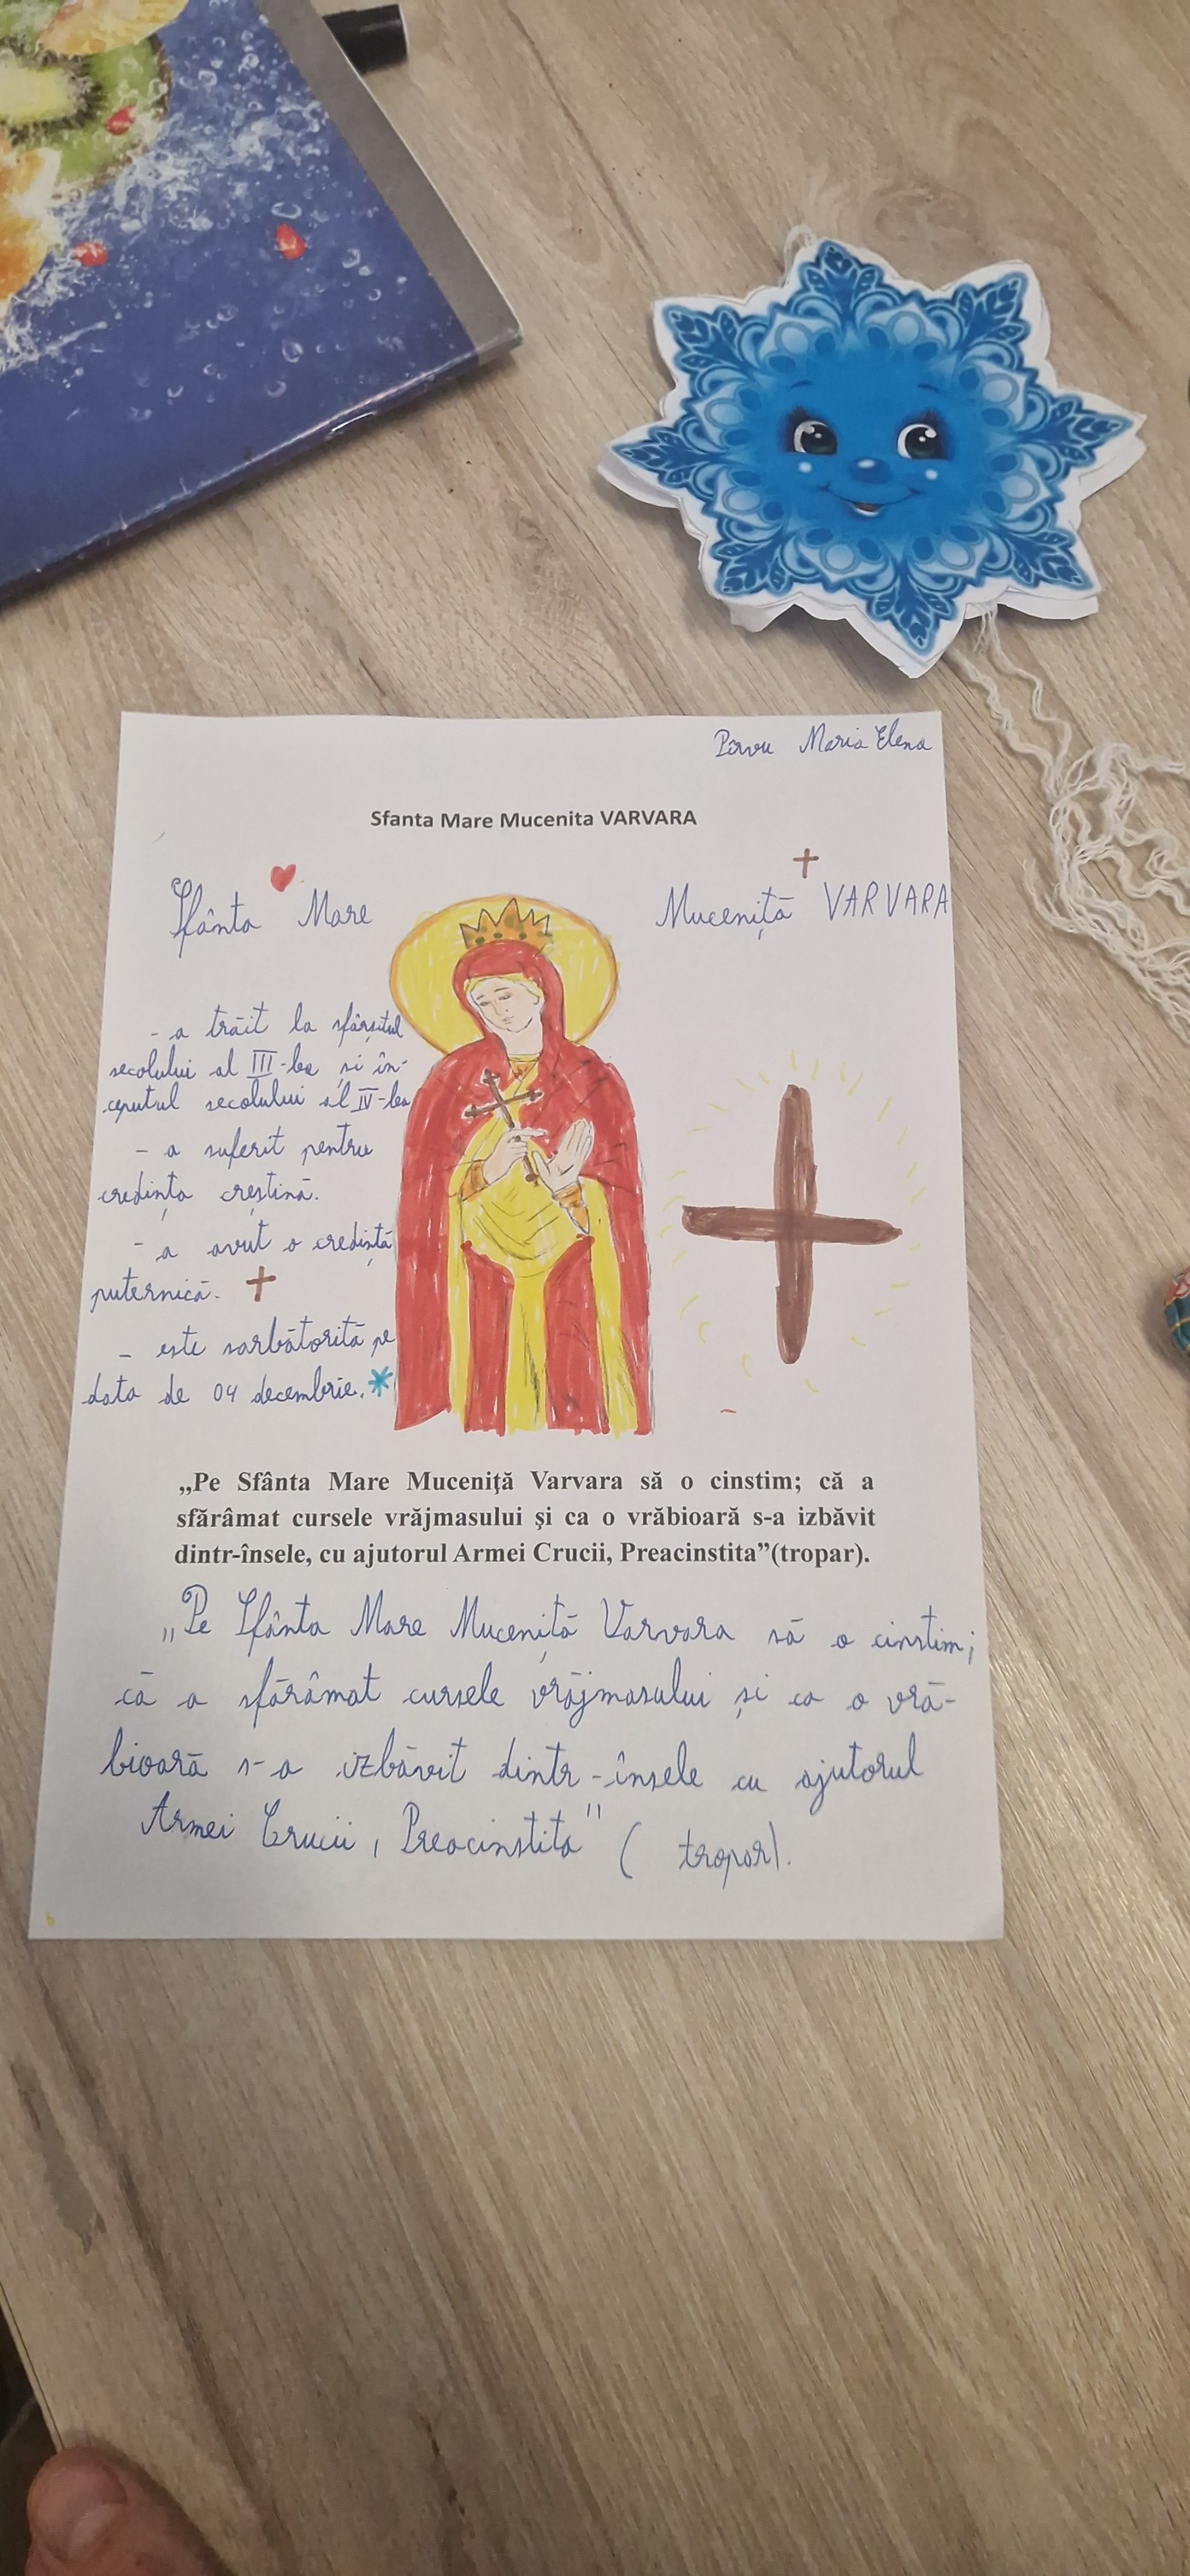 Pîrvu Maria Elena
Sfanta Mare Mucenita VARVARA
Sfânta Mare Muceniță VARVARA
- a trăit la sfârșitul
secolului al III-lea și în-
ceputul secolului al IV-lea
- a suferit pentru
credința creștină.
- a avut o credință
puternică.
- este sarbătorită pe
data de 04 decembrie.
„Pe Sfânta Mare Muceniţă Varvara să o cinstim; că a
sfărâmat cursele vrăjmasului şi ca o vrăbioară s-a izbăvit
dintr-însele, cu ajutorul Armei Crucii, Preacinstita”(tropar).
„Pe Sfânta Mare Muceniță Varvara să o cinstim;
că a sfărâmat cursele vrăjmasului și ca o vră-
bioară s-a izbăvit dintr-însele cu ajutorul
Armei Crucii, Preacinstita" ( tropar).